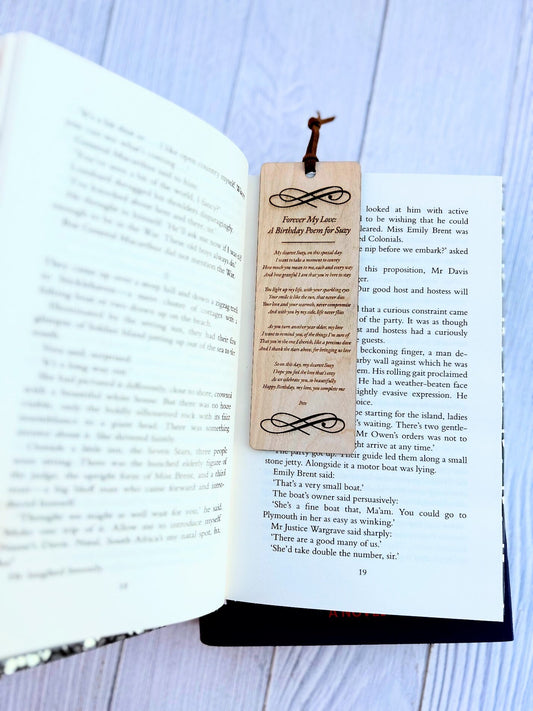 'It's a bit
I like open country myself. Where
you can see what's coming.'
General Macarthur said to him:
'You've been about a bit of the world, I fancy?'
Lombard shrugged his shoulders disparagingly.
'I've knocked about here and there, sir.'
enough to be in the War. These old boys always do.'
But General Macarthur did not mention the War.
They came up over a steep hill and down a zigzag track
cluster of cottages with a
fishing boat or two drawn up on the beach.
setting sun, they had their first
glimpse of Island jutting up out of the sea to the
south.
Vera said, surprised:
'It's a long way out.'
She had pictured it differently, close to shore, crowned
with a beautiful white house. But there was no house
visible, only the boldly silhouetted rock with its faint
resemblance to a giant head. There was something
sinister about it. She shivered faintly.
Outside a little inn, the Seven Stars, three people
were sitting. There was the hunched elderly figure of
the judge, the upright form of Miss Brent, and a third
man – a big bluff man who came forward and intro-
duced himself.
'Thought we might as well wait for you,' he said.
'Make one trip of it. Allow me to introduce myself.
Name's Davis. Natal, South Africa's my natal spot, ha,
18
Forever My Love:
A Birthday Poem for Suzy
My dearest Suzy, on this special day
I want to take a moment to convey
How much you mean to me, each and every way
And how grateful I am that you're here to stay
You light up my life, with your sparkling eyes
Your smile is like the sun, that never dies
Your love and your warmth, never compromise
And with you by my side, life never flies
As you turn another year older, my love
I want to remind you of the things I'm sure of
That you're the one I cherish, like a precious dove
And I thank the stars above, for bringing us love
So on this day, my dearest Suzy
I hope you feel the love that's easy
As we celebrate you, so beautifully
Happy Birthday, my love, you complete me
Pete
looked at him with active
d to be wishing that he could
leared. Miss Emily Brent was
d Colonials.
e nip before we embark?' asked
this proposition, Mr Davis
ger.
Our good host and hostess will
d that a curious constraint came
of the party. It was as though
st and hostess had a curiously
guests.
beckoning finger, a man de-
arby wall against which he was
em. His rolling gait proclaimed
He had a weather-beaten face
ightly evasive expression. He
be starting for the island, ladies
s waiting. There's two gentle-
Mr Owen's orders was not to
ght arrive at any time.'
The party got up. Their guide led them along a small
stone jetty. Alongside it a motor boat was lying.
Emily Brent said:
'That's a very small boat.'
The boat's owner said persuasively:
'She's a fine boat that, Ma'am. You could go to
Plymouth in her as easy as winking.'
Mr Justice Wargrave said sharply:
'There are a good many of us.'
'She'd take double the number, sir.'
19
A NOVE